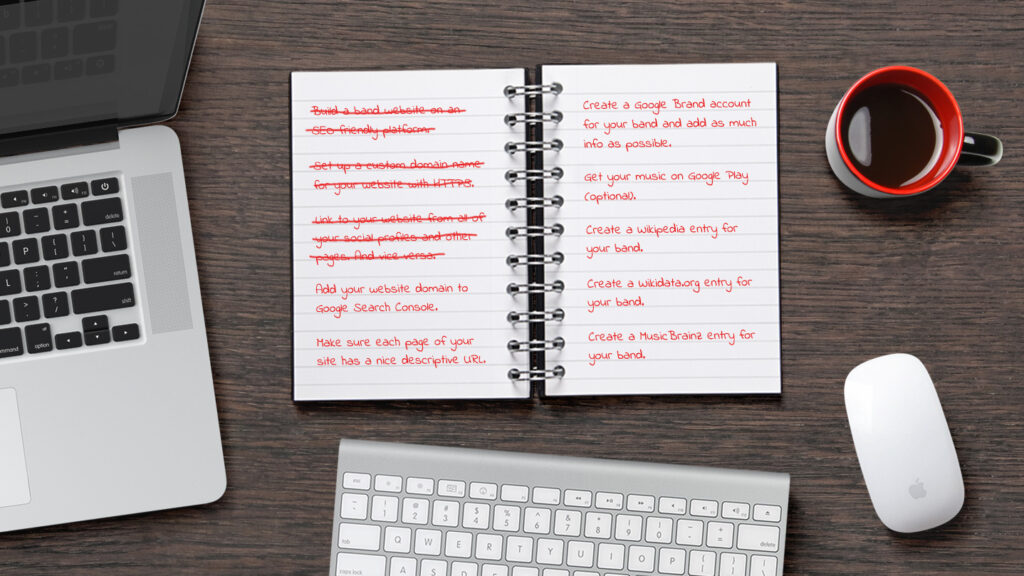 Build a band website on an
SEO friendly platform.
Set up a custom domain name
for your website with HTTPS.
Link to your website from all of
your social profiles and other
pages. And vice versa.
Add your website domain to
Google Search Console.
Make sure each page of your
site has a nice descriptive URL.
Create a Google Brand account
for your band and add as much
info as possible.
Get your music on Google Play
(optional).
Create a Wikipedia entry for
your band.
Create a wikidata.org entry for
your band.
Create a MusicBrainz entry for
your band.
delete
return
shift
command option
esc
delete
tab Q W E R T Y U I O P
caps lock A S D F G H J K L